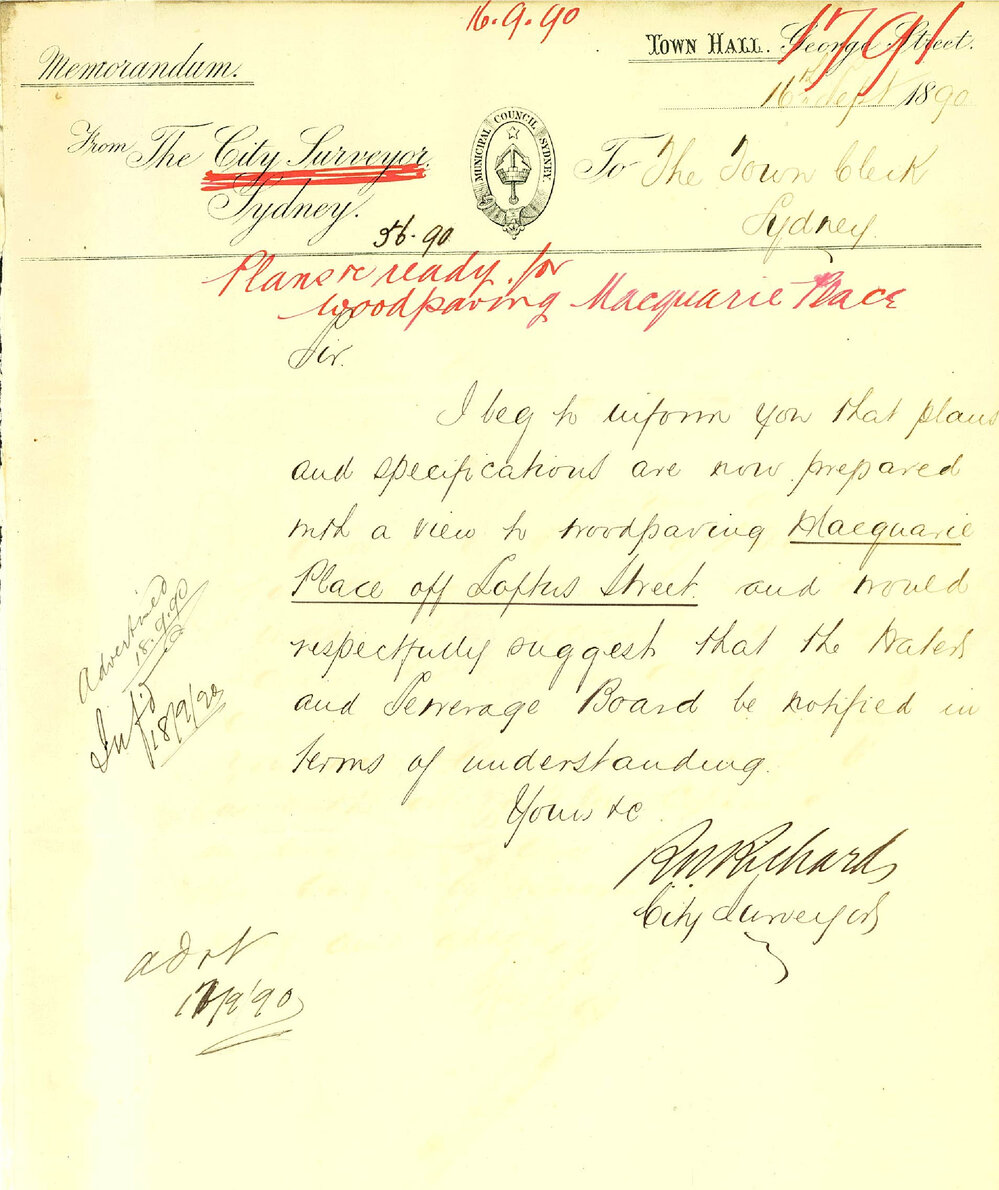 16.9.90
1791
TOWN HALL. George Street.
Memorandum.
16th Sept 1890
From The City Surveyor.
Sydney.
MUNICIPAL COUNCIL SYDNEY
To The Town Clerk
Sydney.
56.90
Plans &c ready for
woodpaving Macquarie Place
Sir.
I beg to inform you that plans
and specifications are now prepared
with a view to woodpaving Macquarie
Place off Loftus Street. and would
respectfully suggest that the Water
and Sewerage Board be notified in
terms of understanding.
Yours &c
RWRichards
City Surveyor
Advertised
18.9.90
Inf'd
18/9/90
advt
17/9/90